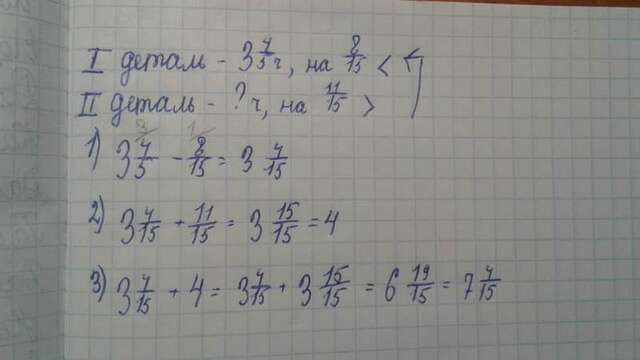 I деталь - 3 4/5 г, на 8/15 <
II деталь - ? г, на 11/15 >
1) 3 4/5 - 8/15 = 3 4/15
2) 3 4/15 + 11/15 = 3 15/15 = 4
3) 3 4/15 + 4 = 3 4/15 + 3 15/15 = 6 19/15 = 7 4/15